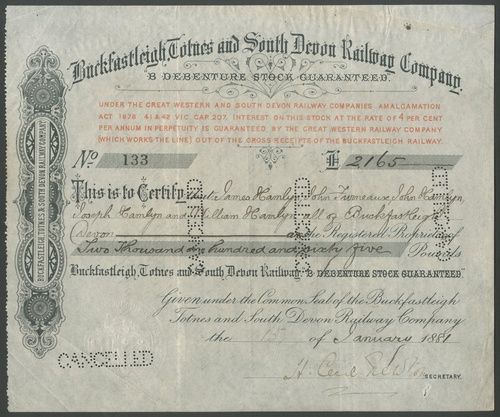 Buckfastleigh, Totnes and South Devon Railway Company.
B DEBENTURE STOCK GUARANTEED.
UNDER THE GREAT WESTERN AND SOUTH DEVON RAILWAY COMPANIES AMALGAMATION
ACT 1878 41 & 42 VIC CAP 207, INTEREST ON THIS STOCK AT THE RATE OF 4 PER CENT
PER ANNUM IN PERPETUITY IS GUARANTEED BY THE GREAT WESTERN RAILWAY COMPANY
(WHICH WORKS THE LINE) OUT OF THE GROSS RECEIPTS OF THE BUCKFASTLEIGH RAILWAY.
No 133 £ 2165
This is to Certify that James Hamlyn John Furneaux, John Hamlyn,
Joseph Hamlyn and William Hamlyn all of Buckfastleigh
Devon are the Registered Proprietors of
Two Thousand one hundred and sixty five Pounds
Buckfastleigh, Totnes and South Devon Railway "B DEBENTURE STOCK GUARANTEED."
Given under the Common Seal of the Buckfastleigh
Totnes and South Devon Railway Company
the of January 1881
SECRETARY.
CANCELLED
CANCELLED
CANCELLED
CANCELLED
BUCKFASTLEIGH TOTNES & SOUTH DEVON RAILWAY COMPANY